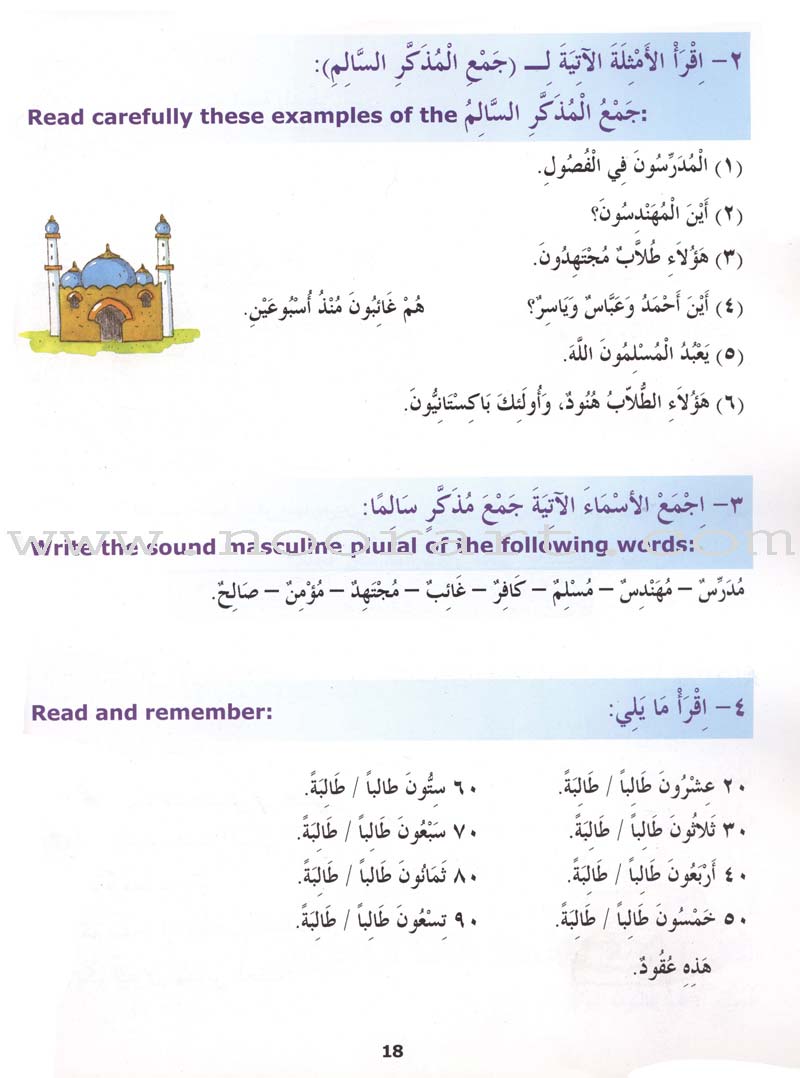 ٢- اِقْرَأْ الأَمْثِلَةَ الآتِيَةَ لِــ (جَمْعِ الْمُذَكَّرِ السَّالِمِ):
Read carefully these examples of the جَمْعُ الْمُذَكَّرِ السَّالِمُ:
(١) الْمُدَرِّسُونَ فِي الْفُصُولِ.
(٢) أَيْنَ الْمُهَنْدِسُونَ؟
(٣) هَؤُلاَءِ طُلاَّبٌ مُجْتَهِدُونَ.
(٤) أَيْنَ أَحْمَدُ وَعَبَّاسٌ وَيَاسِرٌ؟ هُمْ غَائِبُونَ مُنْذُ أُسْبُوعَيْنِ.
(٥) يَعْبُدُ الْمُسْلِمُونَ اللَّهَ.
(٦) هَؤُلاَءِ الطُّلاّبُ هُنُودٌ، وَأُولَئِكَ بَاكِسْتَانِيُّونَ.
٣- اِجْمَعْ الأسْمَاءَ الآتِيَةَ جَمْعَ مُذَكَّرٍ سَالِمًا:
www.noorart.com
Write the sound masculine plural of the following words:
مُدَرِّسٌ – مُهَنْدِسٌ – مُسْلِمٌ – كَافِرٌ – غَائِبٌ – مُجْتَهِدٌ – مُؤْمِنٌ – صَالِحٌ.
٤- اِقْرَأْ مَا يَلِي:
Read and remember:
٢٠ عِشْرُونَ طَالِباً / طَالِبَةً. ٦٠ سِتُّونَ طالباً / طَالِبَةً.
٣٠ ثَلاثُونَ طَالِباً / طَالِبَةً. ٧٠ سَبْعُونَ طَالِباً / طَالِبَةً.
٤٠ أَرْبَعُونَ طَالِباً / طَالِبَةً. ٨٠ ثَمَانُونَ طَالِباً / طَالِبَةً.
٥٠ خَمْسُونَ طَالِباً / طَالِبَةً. ٩٠ تِسْعُونَ طَالِباً / طَالِبَةً.
هَذِهِ عُقُودٌ.
18